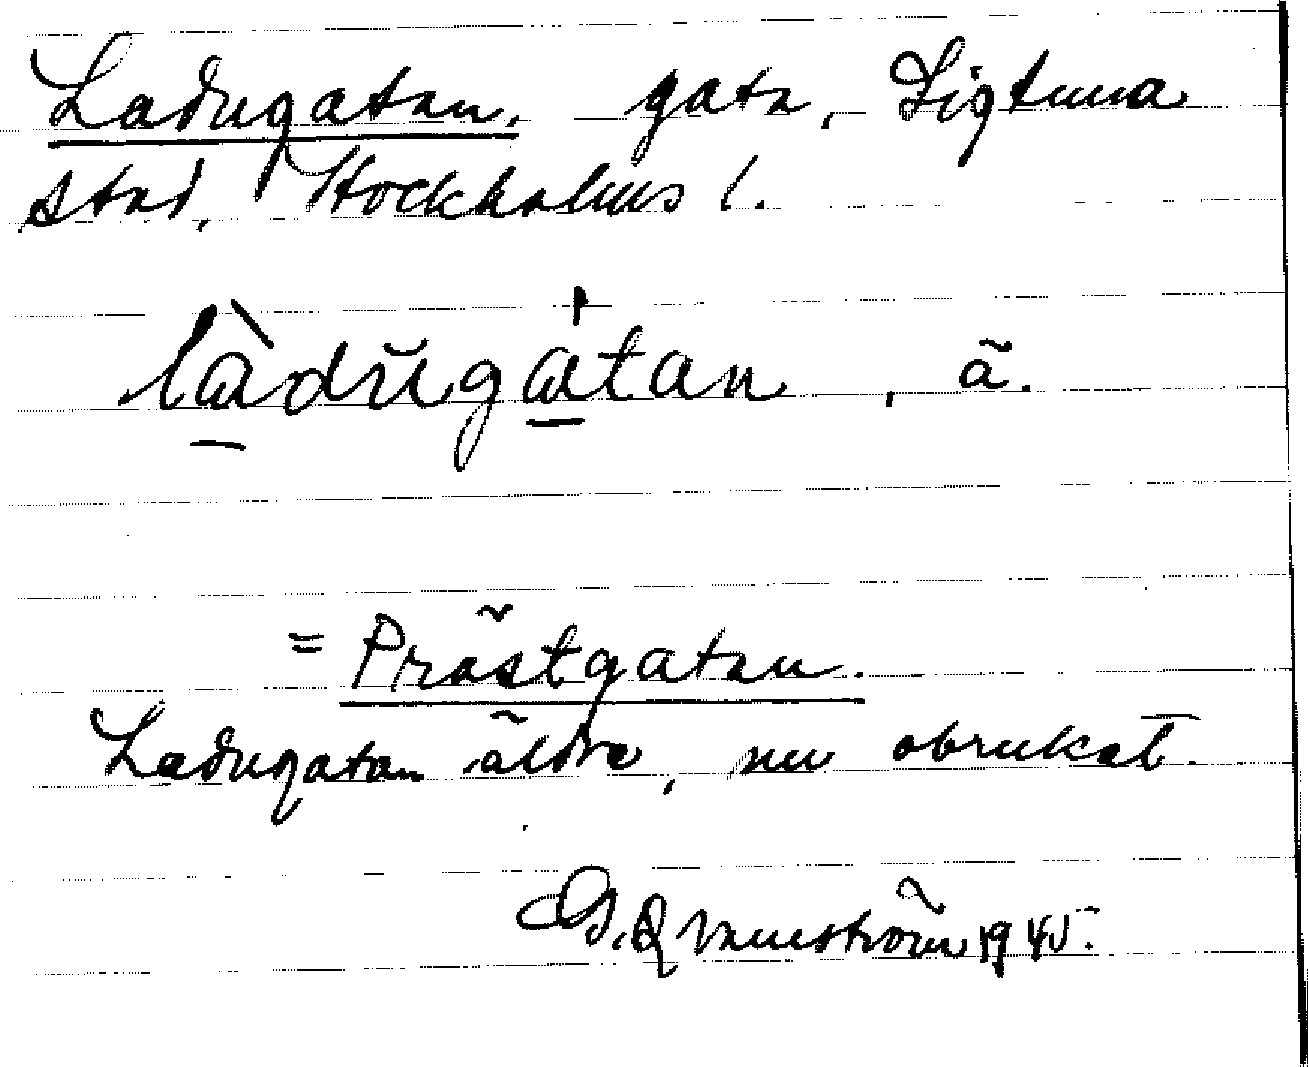 Ladugatan, gata, Sigtuna
stad, Stockholms l.
làdŭgátan, ã.
= Prästgatan.
Ladugatan äldre, nu obrukat.
G. Qvarnström 1945.